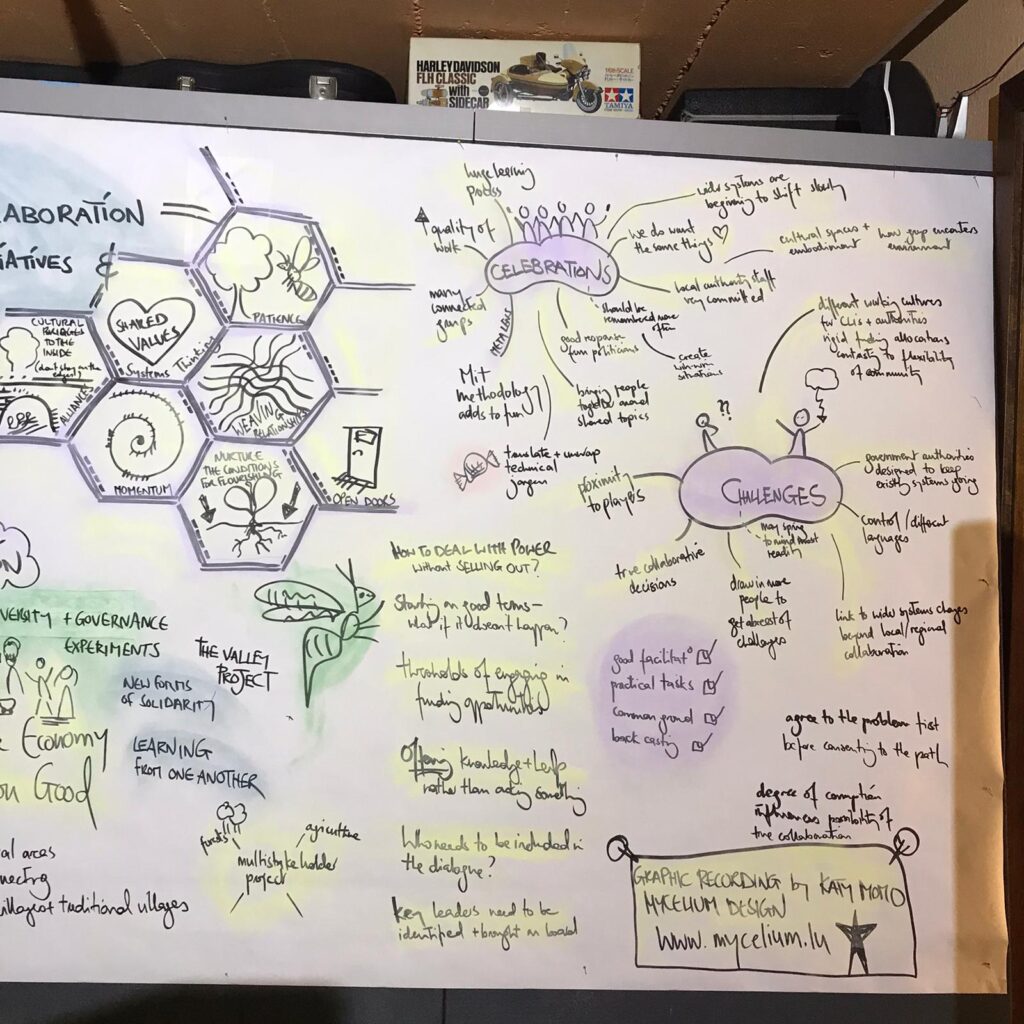 HARLEY DAVIDSON
FLH CLASSIC
with
SIDECAR
TAMIYA
LABORATION
IATIVES &
CULTURAL
TO THE
INSIDE
ALLIANCE
SHARED
VALUES
Systems Thinking
PATIENCE
WEAVING
RELATIONSHIPS
MOMENTUM
NURTURE
THE CONDITIONS
FOR FLOURISHING
OPEN DOORS
huge learning
process
quality of
work
many
connected
groups
CELEBRATIONS
wider systems are
beginning to shift slowly
we do want
the same things
cultural spaces + how group encounters
embodiment environment
local authority staff
very committed
should be
remembered more
often
create
win-win
situations
good response
from politicians
bringing people
together around
shared topics
MiT
methodology
adds to fun
translate + unwrap
technical
jargon
different working cultures
for CLIs + authorities
rigid funding allocations
contrasty to flexibility
of community
??
CHALLENGES
may spring
to mind most
readily
proximity
to players
government authorities
designed to keep
existing systems going
control / different
languages
true collaborative
decisions
draw in more
people to
get abreast of
challenges
link to wider systems changes
beyond local/regional
collaboration
ON
VERSITY + GOVERNANCE
EXPERIMENTS
NEW FORMS
OF SOLIDARITY
THE VALLEY
PROJECT
ECONOMY
ON GOOD
LEARNING
FROM ONE ANOTHER
funds
agriculture
multistakeholder
project
al areas
nnecting
villages + traditional villages
HOW TO DEAL WITH POWER
without SELLING OUT?
Starting on good terms –
what if it doesn't happen?
thresholds of engaging in
funding opportunities
Offering knowledge + help
rather than asking something
Who needs to be included in
the dialogue?
key leaders need to be
identified + brought on board
good facilitat°
practical tasks
common ground
back casting
agree to the problem first
before consenting to the path
degree of corruption
influences possibility of
true collaboration
GRAPHIC RECORDING by KATY MOMO
MYCELIUM DESIGN
www.mycelium.lu